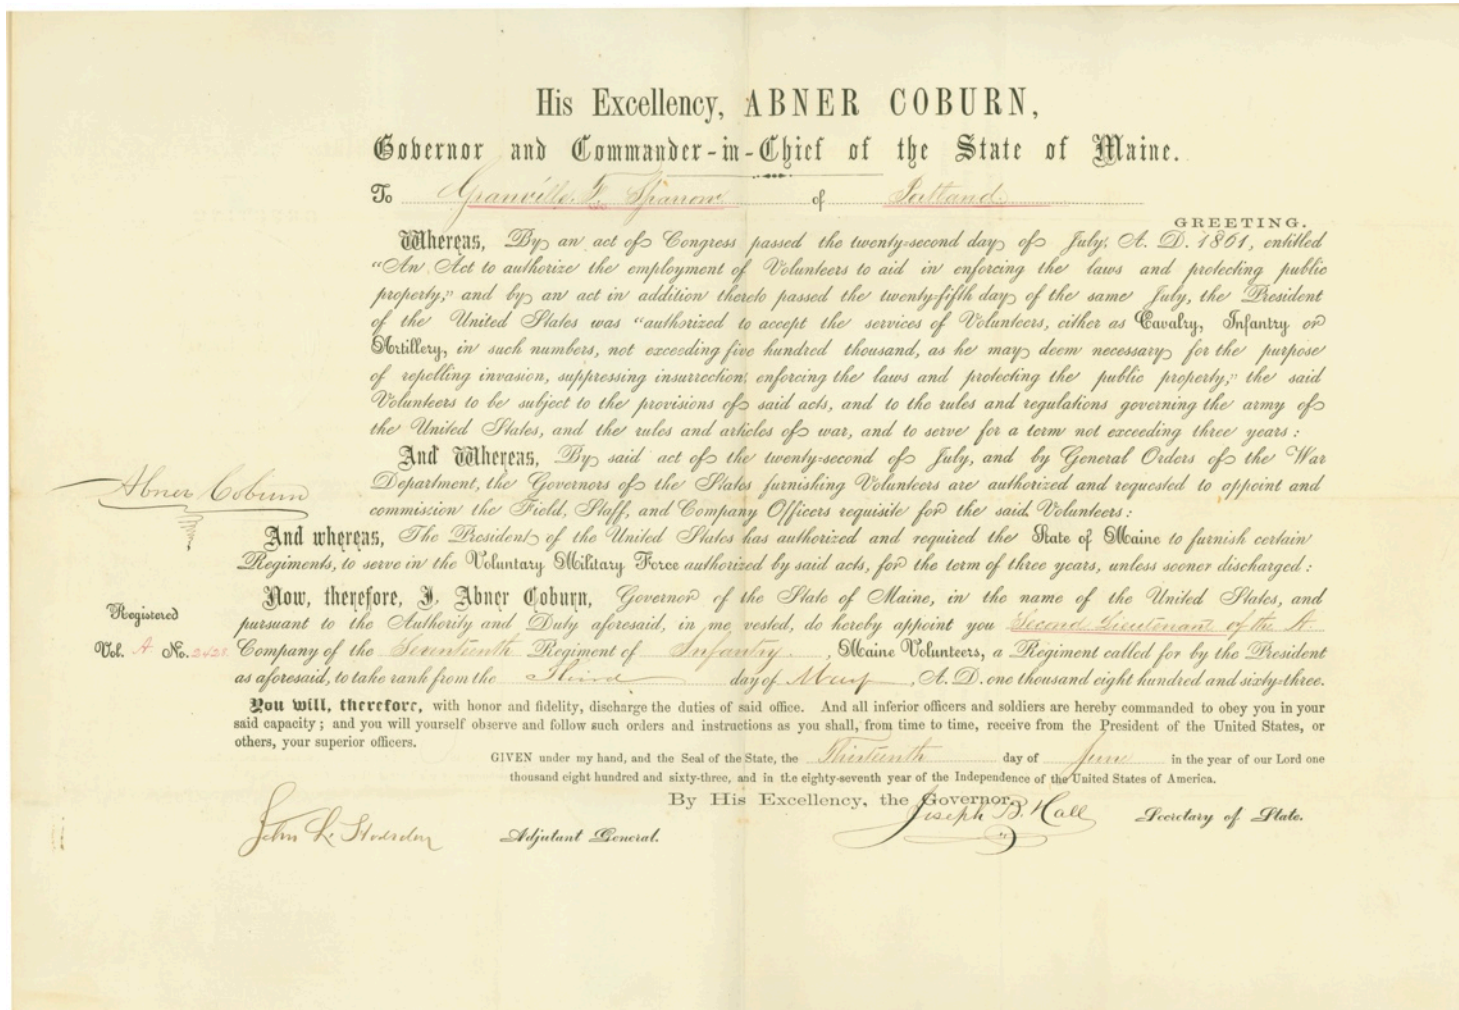 His Excellency, ABNER COBURN,
Governor and Commander-in-Chief of the State of Maine.
To Granville F. Sparrow of Portland
GREETING.
Whereas, By an act of Congress passed the twenty-second day of July, A. D. 1861, entitled
"An Act to authorize the employment of Volunteers to aid in enforcing the laws and protecting public
property," and by an act in addition thereto passed the twenty-fifth day of the same July, the President
of the United States was "authorized to accept the services of Volunteers, either as Cavalry, Infantry or
Artillery, in such numbers, not exceeding five hundred thousand, as he may deem necessary for the purpose
of repelling invasion, suppressing insurrection, enforcing the laws and protecting the public property," the said
Volunteers to be subject to the provisions of said acts, and to the rules and regulations governing the army of
the United States, and the rules and articles of war, and to serve for a term not exceeding three years:
And Whereas, By said act of the twenty-second of July, and by General Orders of the War
Department, the Governors of the States furnishing Volunteers are authorized and requested to appoint and
commission the Field, Staff, and Company Officers requisite for the said Volunteers:
Abner Coburn
And whereas, The President of the United States has authorized and required the State of Maine to furnish certain
Regiments, to serve in the Voluntary Military Force authorized by said acts, for the term of three years, unless sooner discharged:
Now, therefore, I, Abner Coburn, Governor of the State of Maine, in the name of the United States, and
pursuant to the Authority and Duty aforesaid, in me vested, do hereby appoint you Second Lieutenant of the A
Registered
Vol. A No.
Company of the Seventeenth Regiment of Infantry, Maine Volunteers, a Regiment called for by the President
as aforesaid, to take rank from the Third day of May, A. D. one thousand eight hundred and sixty-three.
You will, therefore, with honor and fidelity, discharge the duties of said office. And all inferior officers and soldiers are hereby commanded to obey you in your
said capacity; and you will yourself observe and follow such orders and instructions as you shall, from time to time, receive from the President of the United States, or
others, your superior officers.
GIVEN under my hand, and the Seal of the State, the Thirteenth day of June in the year of our Lord one
thousand eight hundred and sixty-three, and in the eighty-seventh year of the Independence of the United States of America.
By His Excellency, the Governor,
Joseph B. Hall Secretary of State.
John L. Hodsdon Adjutant General.